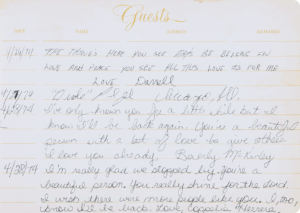 Guests
4/24/79 THE THINGS HERE YOU SEE ARE BE BELIEVE IN
LOVE AND PEACE YOU SEE ALL THIS LOVE IS FOR ME
LOVE, Darrell
4/27/79 Chicago, Ill.
4/28/79 I've only known you for a little while but I
know I'll be back again. You're a beautiful
person with a lot of love to give others
I love you already. Beverly McKinley
4/28/79 I'm really glad we stopped by, you're a
beautiful person. You really shine for the Lord.
I wish there were more people like you. I, too,
know I'll be back. Love, Herrera